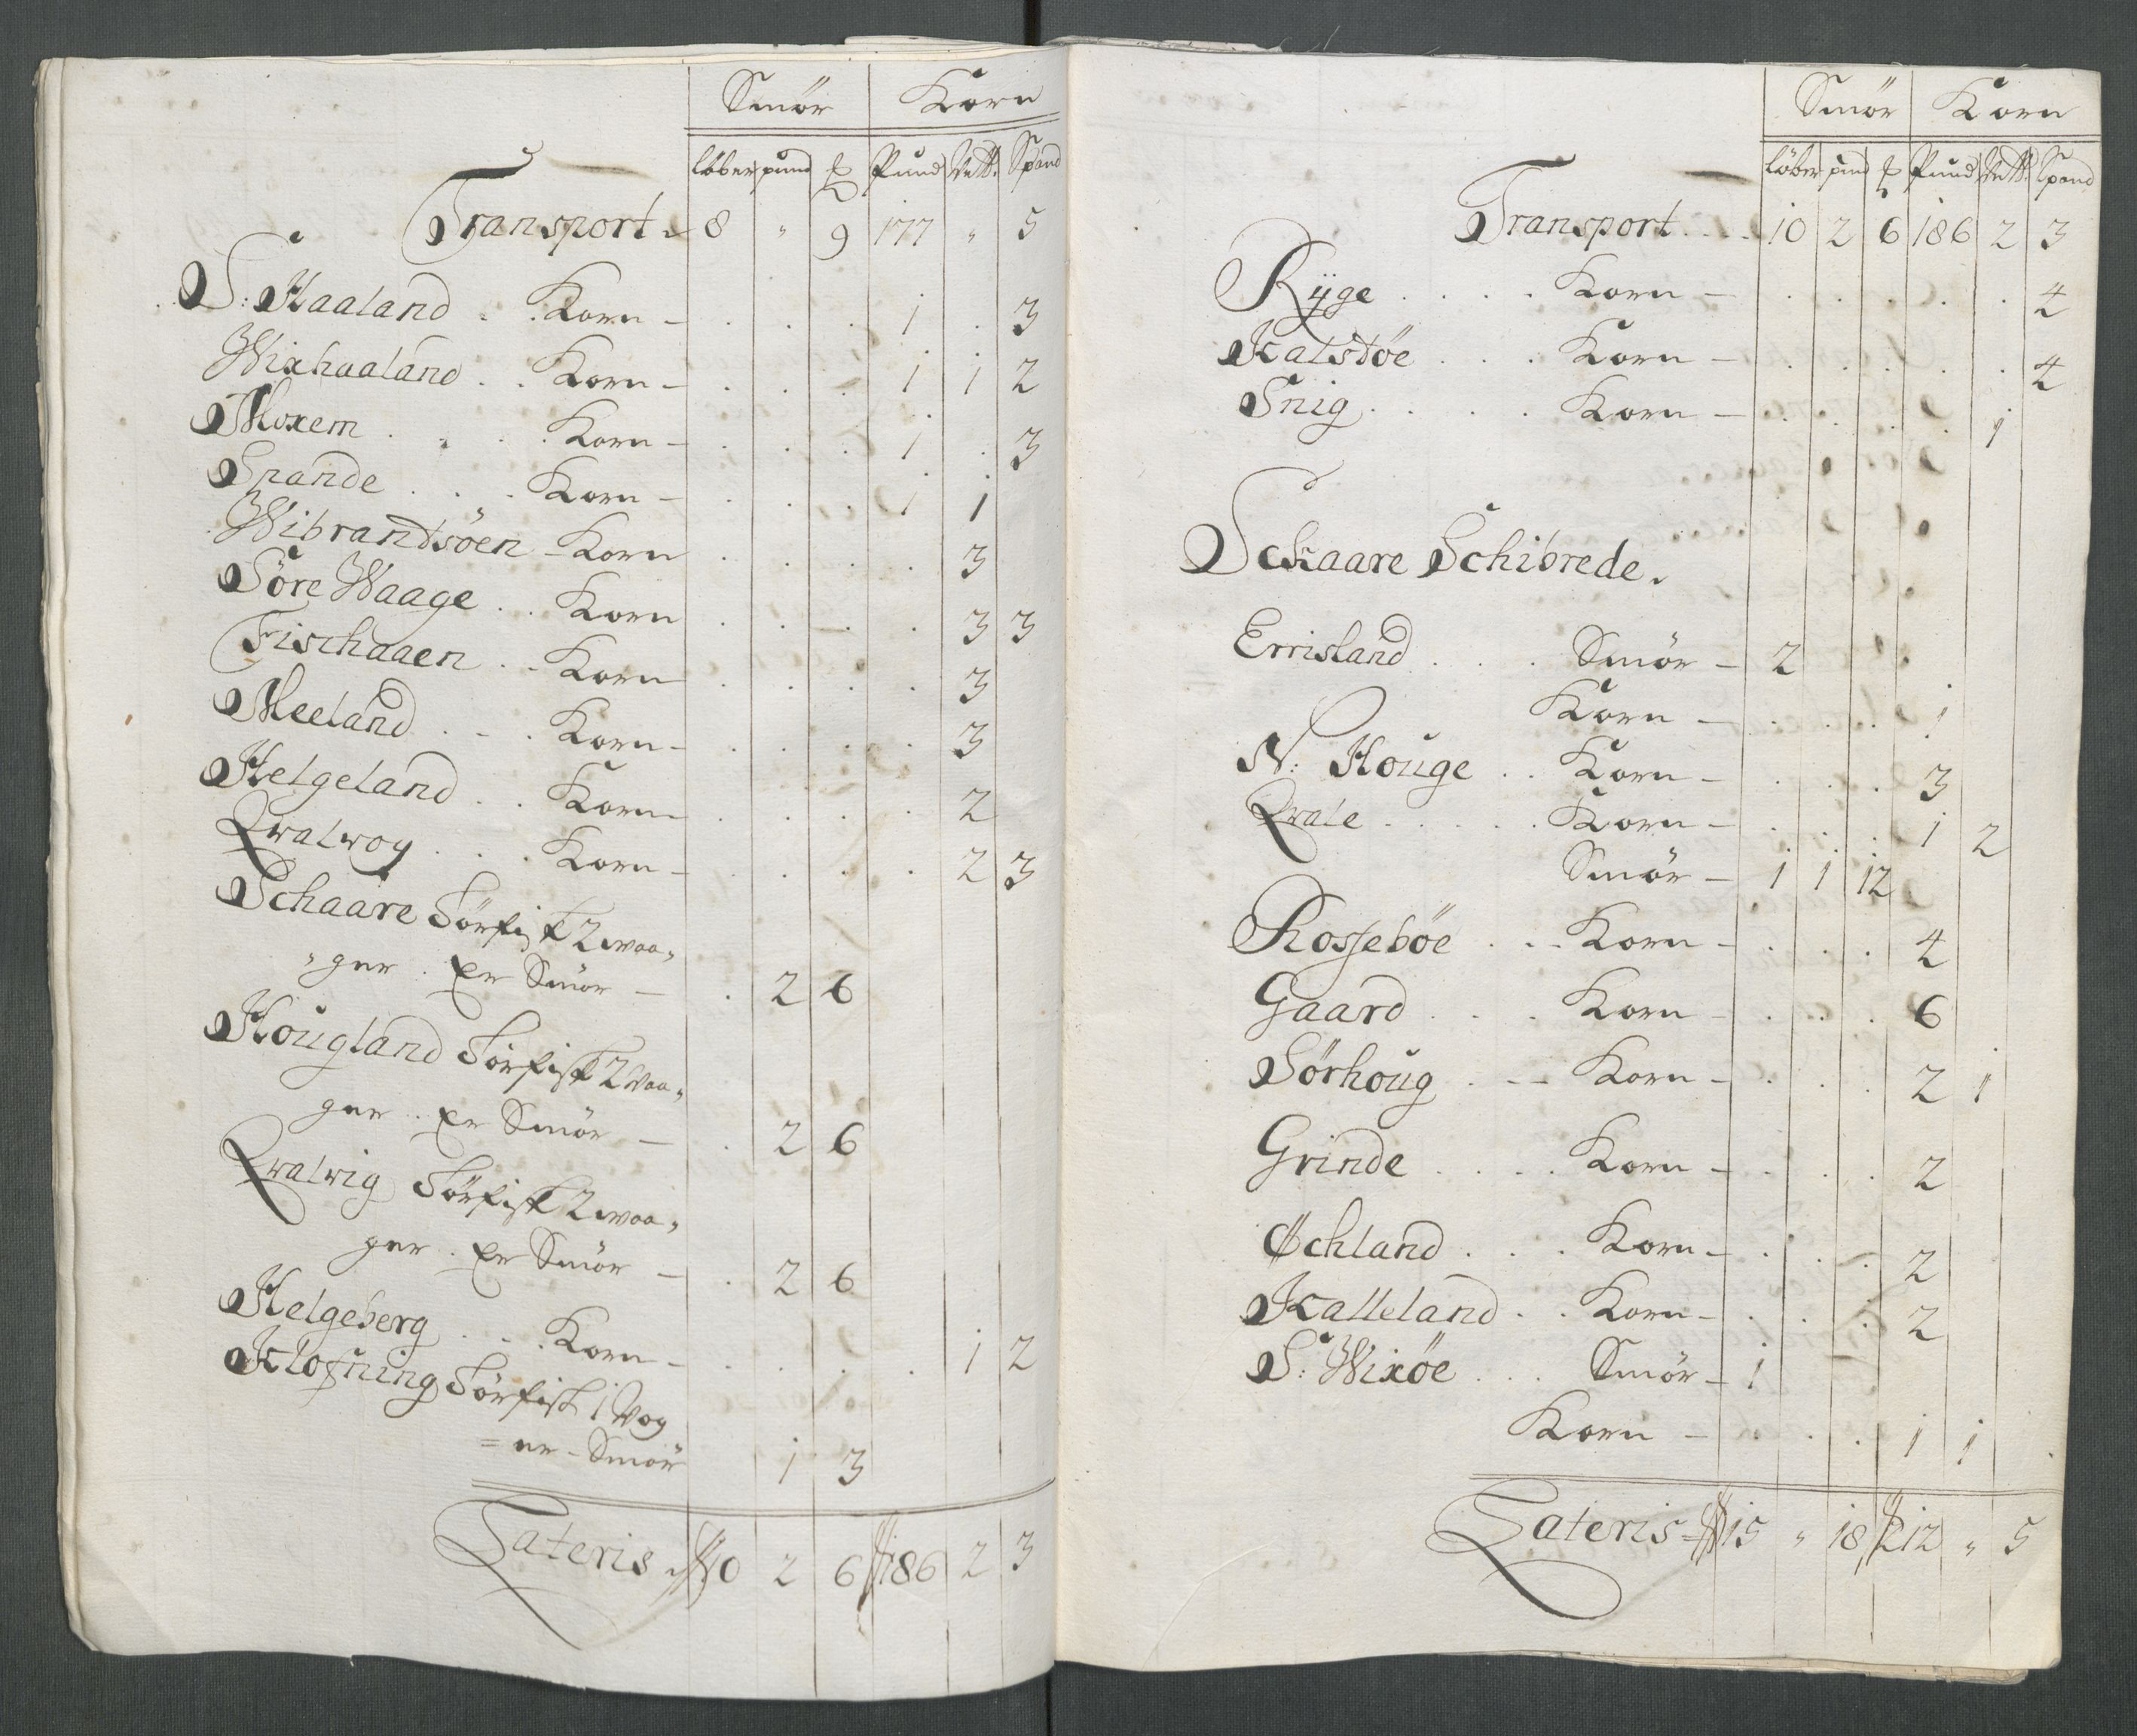 Smör Korn
løber pund ℔ Pund Vett. Spand
Transport. 8 " 9 177 " 5
S: Haaland . . Korn - . . . 1 . 3
Wixhaaland . . Korn - . . . 1 1 2
Moxem . . . Korn - . . . 1 . 3
Spande . . . Korn - . . . 1 1
Wibrandsöen - Korn . . . . 3
Söre Waage . . Korn . . . . 3 3
Fischaaen . . Korn . . . . 3
Meeland . . . Korn - . . . . 3
Helgeland . . Korn . . . . 2
Qwalwog . . . Korn - . . . . 2 3
Schaare Törfisk 2 waa„
„ger . Er Smör — . 2 6
Hougland Törfisk 2 Waa„
ger . Er Smör — . 2 6
Qwalvig Törfisk 2 waa„
ger . Er Smör — . 2 6
Helgeberg . . . Korn - . . . . 1 2
Klofning Törfisk 1 Vog
= er - Smör 1 3
Lateris 10 2 6 186 2 3
Smör Korn
løber pund ℔ Pund Vett. Spand
Transport . . . . 10 2 6 186 2 3
Rÿge . . . . Korn — . . . . . 4
Kalstöe . . . Korn — . . . . . 4
Snig . . . . Korn — . . . . 1
Schaare Schibrede.
Errisland . . . Smör — 2
Korn — . . . 1
N: Houge . . Korn — . . . 3
Qvale . . . . . Korn — . . . 1 2
Smör — 1 1 12
Rosseböe . . . Korn - . . . 4
Gaard . . . Korn - . . . 6
Sörhoug . - - Korn - . . . 2 1
Grinde . . . . Korn - . . . 2
Øchland . . . Korn - . . . 2
Kalleland . . Korn - . . . 2
S: Wixöe . . . Smör - 1
Korn — . . . 1 1 .
Lateris = 15 " 18 212 " 5